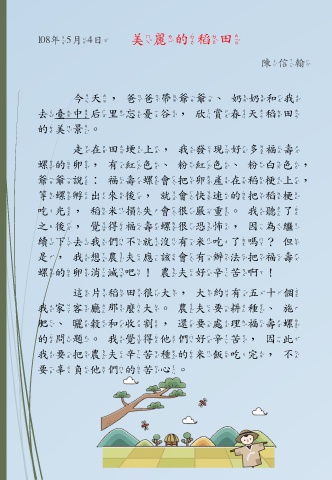 108年5月4日 美麗的稻田
陳信翰
今天，爸爸帶爺爺、奶奶和我
去臺中后里忘憂谷，欣賞春天稻田
的美景。
走在田埂上，我發現好多福壽
螺的卵，有紅色、粉紅色、粉白色，
爺爺說：福壽螺會把卵產在稻梗上，
等螺孵出來後，就會快速的把稻梗
吃光，稻米損失會很嚴重。我聽了
之後，覺得福壽螺很恐怖，因為繼
續下去我們不就沒有米吃了嗎？但
是，我想農夫應該會有辦法把福壽
螺的卵消滅吧！農夫好辛苦啊！
這片稻田很大，大約有五十個
我家客廳那麼大。農夫要耕種、施
肥、曬穀和收割，還要處理福壽螺
的問題。我覺得他們好辛苦，因此
我要把農夫辛苦種的米飯吃完，不
要辜負他們的苦心。